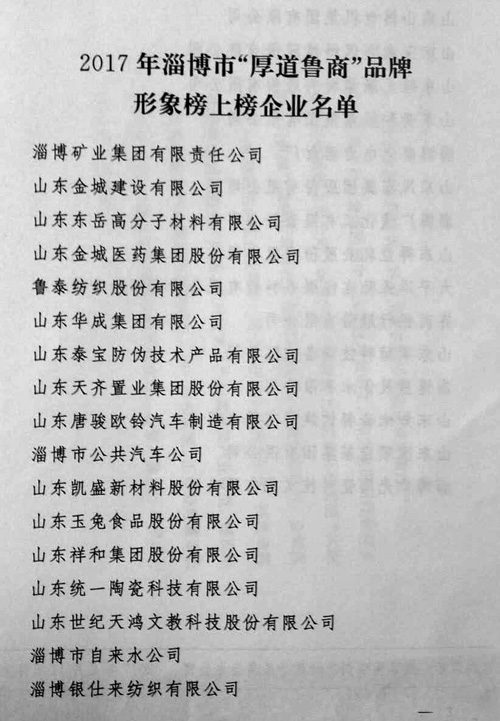 2017 年淄博市“厚道鲁商”品牌
形象榜上榜企业名单
淄博矿业集团有限责任公司
山东金城建设有限公司
山东东岳高分子材料有限公司
山东金城医药集团股份有限公司
鲁泰纺织股份有限公司
山东华成集团有限公司
山东泰宝防伪技术产品有限公司
山东天齐置业集团股份有限公司
山东唐骏欧铃汽车制造有限公司
淄博市公共汽车公司
山东凯盛新材料股份有限公司
山东玉兔食品股份有限公司
山东祥和集团股份有限公司
山东统一陶瓷科技有限公司
山东世纪天鸿文教科技股份有限公司
淄博市自来水公司
淄博银仕来纺织有限公司